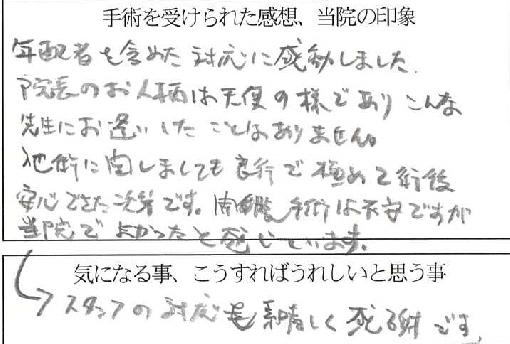 手術を受けられた感想、当院の印象
年配者も含めた対応に感動しました.
院長のお人柄は天使の様であり こんな
先生にお逢いしたことはありません。
施術に関しましても良行で極めて術後
安心できた次第です。開瞼手術は不安ですが
当院でよかったと感じています。
気になる事、こうすればうれしいと思う事
スタッフの対応も素晴しく 感謝です.